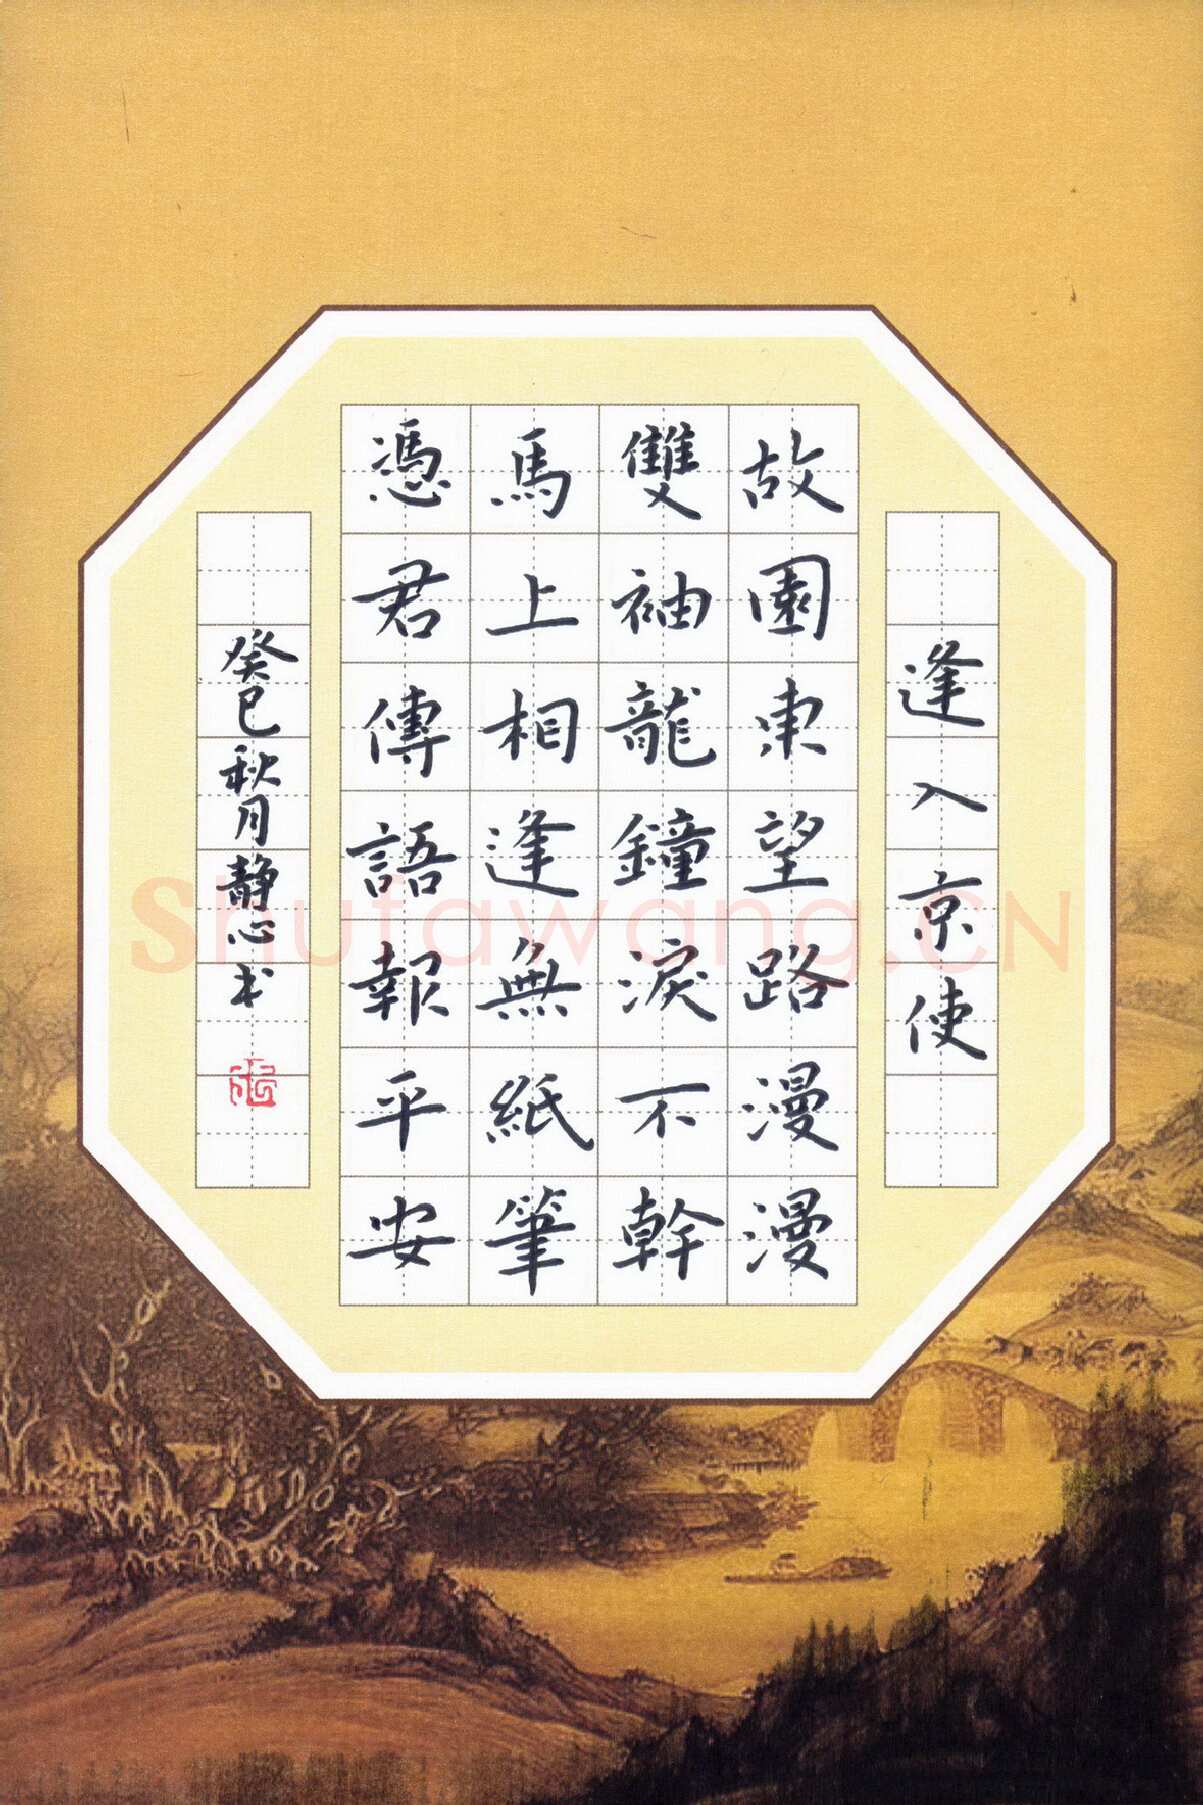 逢入京使
故園東望路漫漫
雙袖龍鐘淚不幹
馬上相逢無紙筆
憑君傳語報平安
癸巳秋月靜心书
shufawang.CN